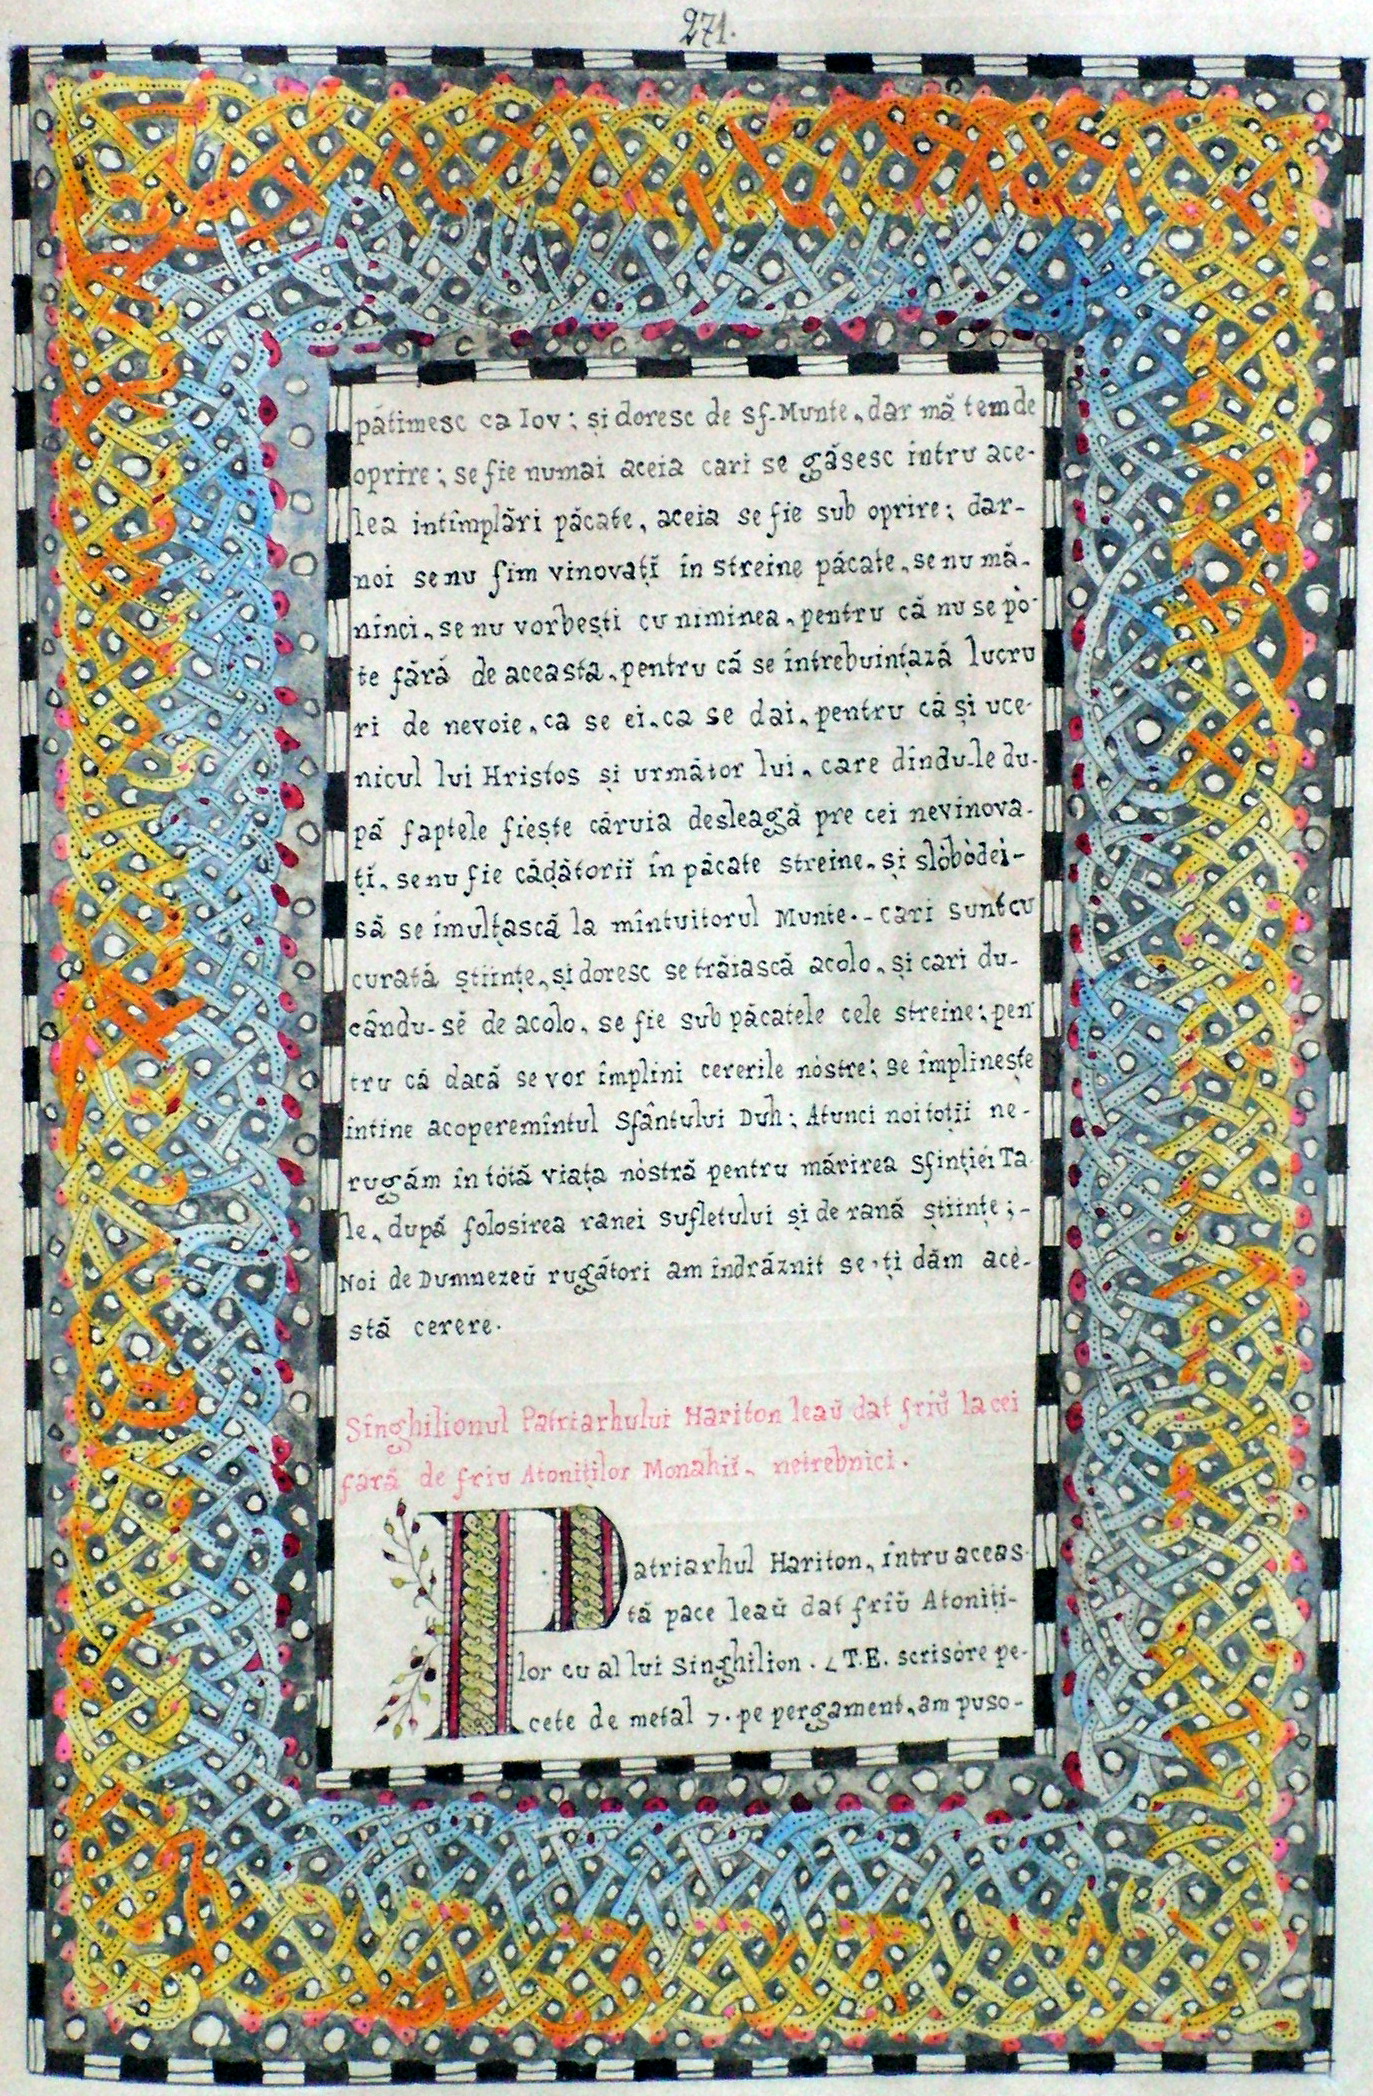 271.
pătimesc ca Iov; și doresc de sf. Munte, dar mă tem de
oprire; se fie numai aceia cari se găsesc intru ace-
lea intîmplări păcate, aceia se fie sub oprire; dar-
noi se nu fim vinovațĭ in streine păcate, se nu mă-
nînci, se nu vorbești cu niminea, pentru că nu se pò-
te fără de aceasta, pentru că se întrebuințază lucru
ri de nevoie, ca se ei, ca se dai, pentru că și uce-
nicul lui Hristos și următor lui, care dîndu-le du-
pă faptele fiește căruia desleagă pre cei nevinova-
ți, se nu fie cădătorii în păcate streine, și slòbòdei-
să se îmulțască la mîntuitorul Munte.- cari sunt cu
curată științe, și doresc se trăiască acolo, și cari du-
cându-sĕ de acolo, se fie sub păcatele cele streine; pen
tru că dacă se vor împlini cererile nòstre; se implinește
întine acoperemîntul Sfântului Duh; Atunci noi toții ne-
rugăm în tòtă viața nòstră pentru mărirea Sfinției Ta-
le, după folosirea ranei sufletului și de rană științe;-
Noi de Dumnezeŭ rugători am îndrăznit se-ți dăm acè-
stă cerere.
Singhilionul Patriarhului Hariton leaŭ dat friŭ la cei
fară de friu Atoniților Monahiĭ, netrebnici.
Patriarhul Hariton, întru aceas-
tă pace leaŭ dat friŭ Atoniți-
lor cu al lui Singhilion. ∠ T.E. scrisòre pe-
cete de metal 7. pe pergament, am puso-